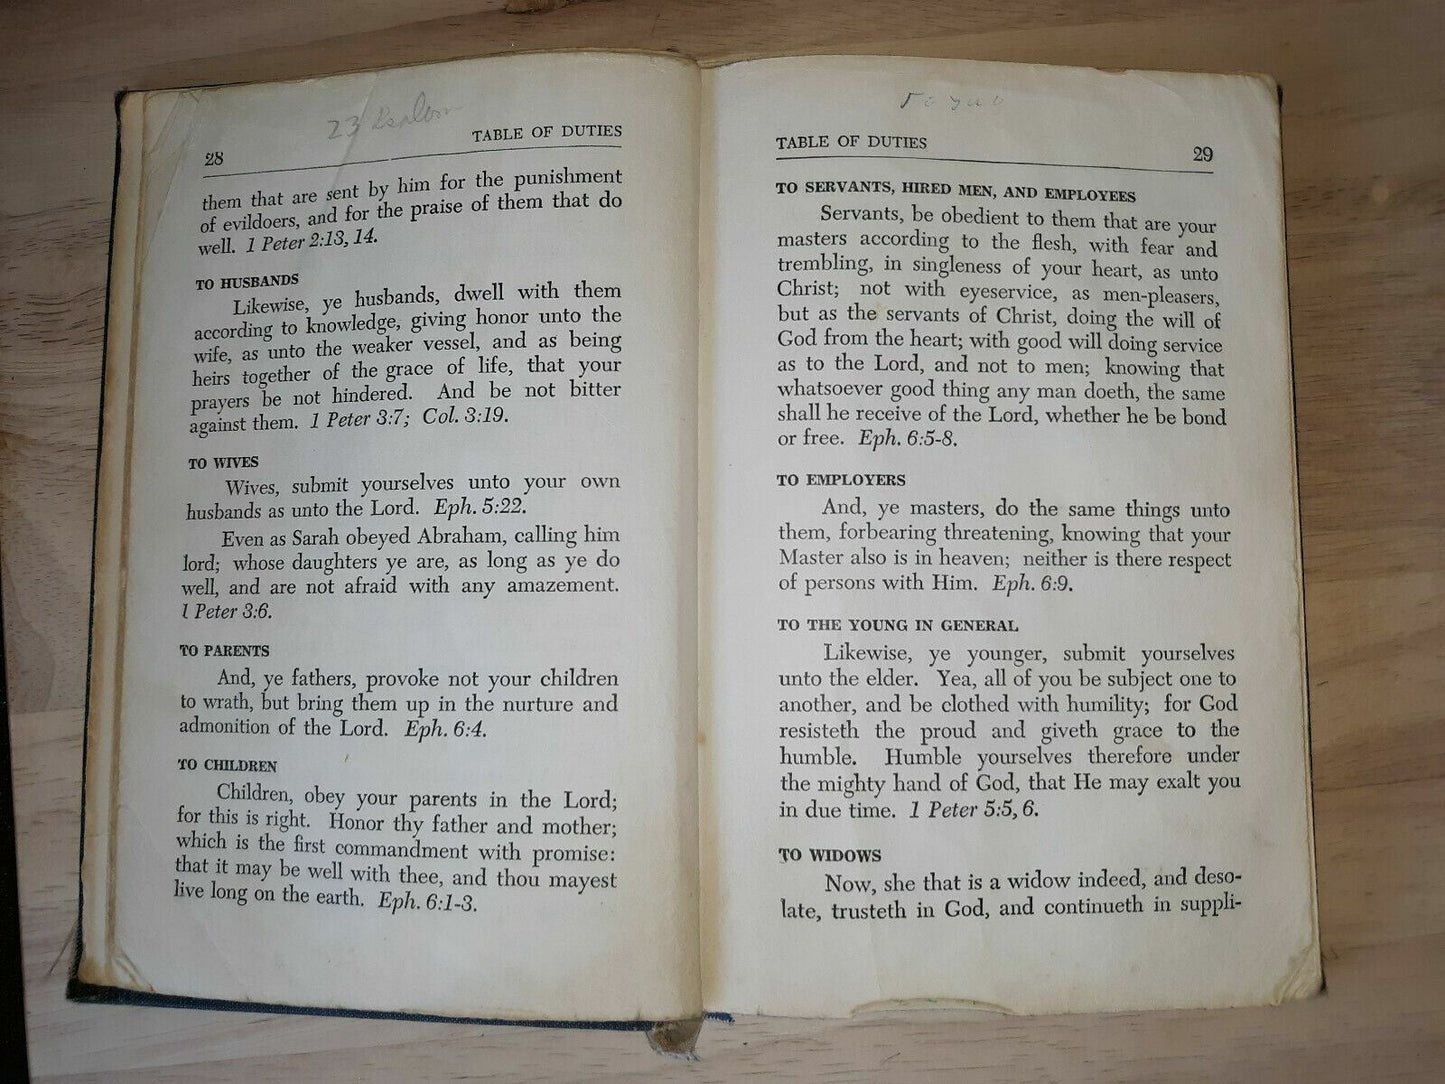 23 Psalm
28 TABLE OF DUTIES
them that are sent by him for the punishment
of evildoers, and for the praise of them that do
well. 1 Peter 2:13, 14.
TO HUSBANDS
Likewise, ye husbands, dwell with them
according to knowledge, giving honor unto the
wife, as unto the weaker vessel, and as being
heirs together of the grace of life, that your
prayers be not hindered. And be not bitter
against them. 1 Peter 3:7; Col. 3:19.
TO WIVES
Wives, submit yourselves unto your own
husbands as unto the Lord. Eph. 5:22.
Even as Sarah obeyed Abraham, calling him
lord; whose daughters ye are, as long as ye do
well, and are not afraid with any amazement.
1 Peter 3:6.
TO PARENTS
And, ye fathers, provoke not your children
to wrath, but bring them up in the nurture and
admonition of the Lord. Eph. 6:4.
TO CHILDREN
Children, obey your parents in the Lord;
for this is right. Honor thy father and mother;
which is the first commandment with promise:
that it may be well with thee, and thou mayest
live long on the earth. Eph. 6:1-3.
TABLE OF DUTIES 29
TO SERVANTS, HIRED MEN, AND EMPLOYEES
Servants, be obedient to them that are your
masters according to the flesh, with fear and
trembling, in singleness of your heart, as unto
Christ; not with eyeservice, as men-pleasers,
but as the servants of Christ, doing the will of
God from the heart; with good will doing service
as to the Lord, and not to men; knowing that
whatsoever good thing any man doeth, the same
shall he receive of the Lord, whether he be bond
or free. Eph. 6:5-8.
TO EMPLOYERS
And, ye masters, do the same things unto
them, forbearing threatening, knowing that your
Master also is in heaven; neither is there respect
of persons with Him. Eph. 6:9.
TO THE YOUNG IN GENERAL
Likewise, ye younger, submit yourselves
unto the elder. Yea, all of you be subject one to
another, and be clothed with humility; for God
resisteth the proud and giveth grace to the
humble. Humble yourselves therefore under
the mighty hand of God, that He may exalt you
in due time. 1 Peter 5:5, 6.
TO WIDOWS
Now, she that is a widow indeed, and deso-
late, trusteth in God, and continueth in suppli-